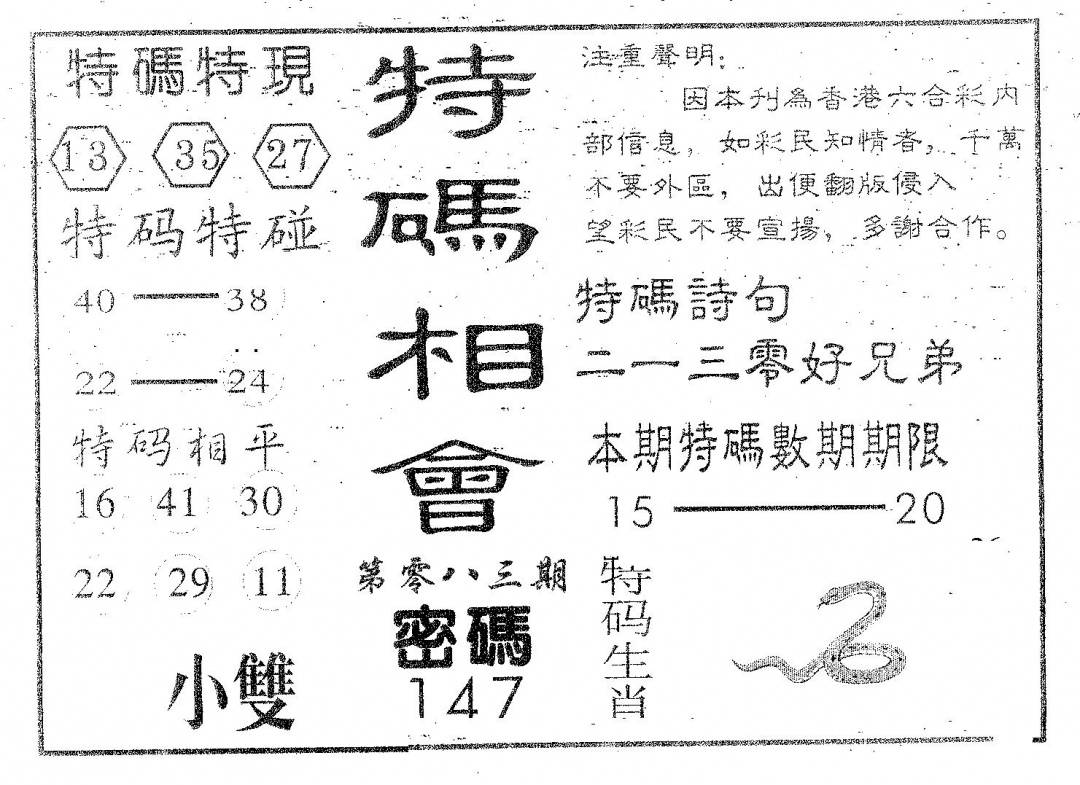 特碼特現
13 35 27
特码特碰
40 —— 38
22 —— 24
特码相平
16 41 30
22 29 11
小雙
特碼相會
第零八三期
密碼
147
注重聲明:
因本刊為香港六合彩内
部信息，如彩民知情者，千萬
不要外區，出便翻版侵入
望彩民不要宣揚，多謝合作。
特碼詩句
二一三零好兄弟
本期特碼數期期限
15 —— 20
特码生肖